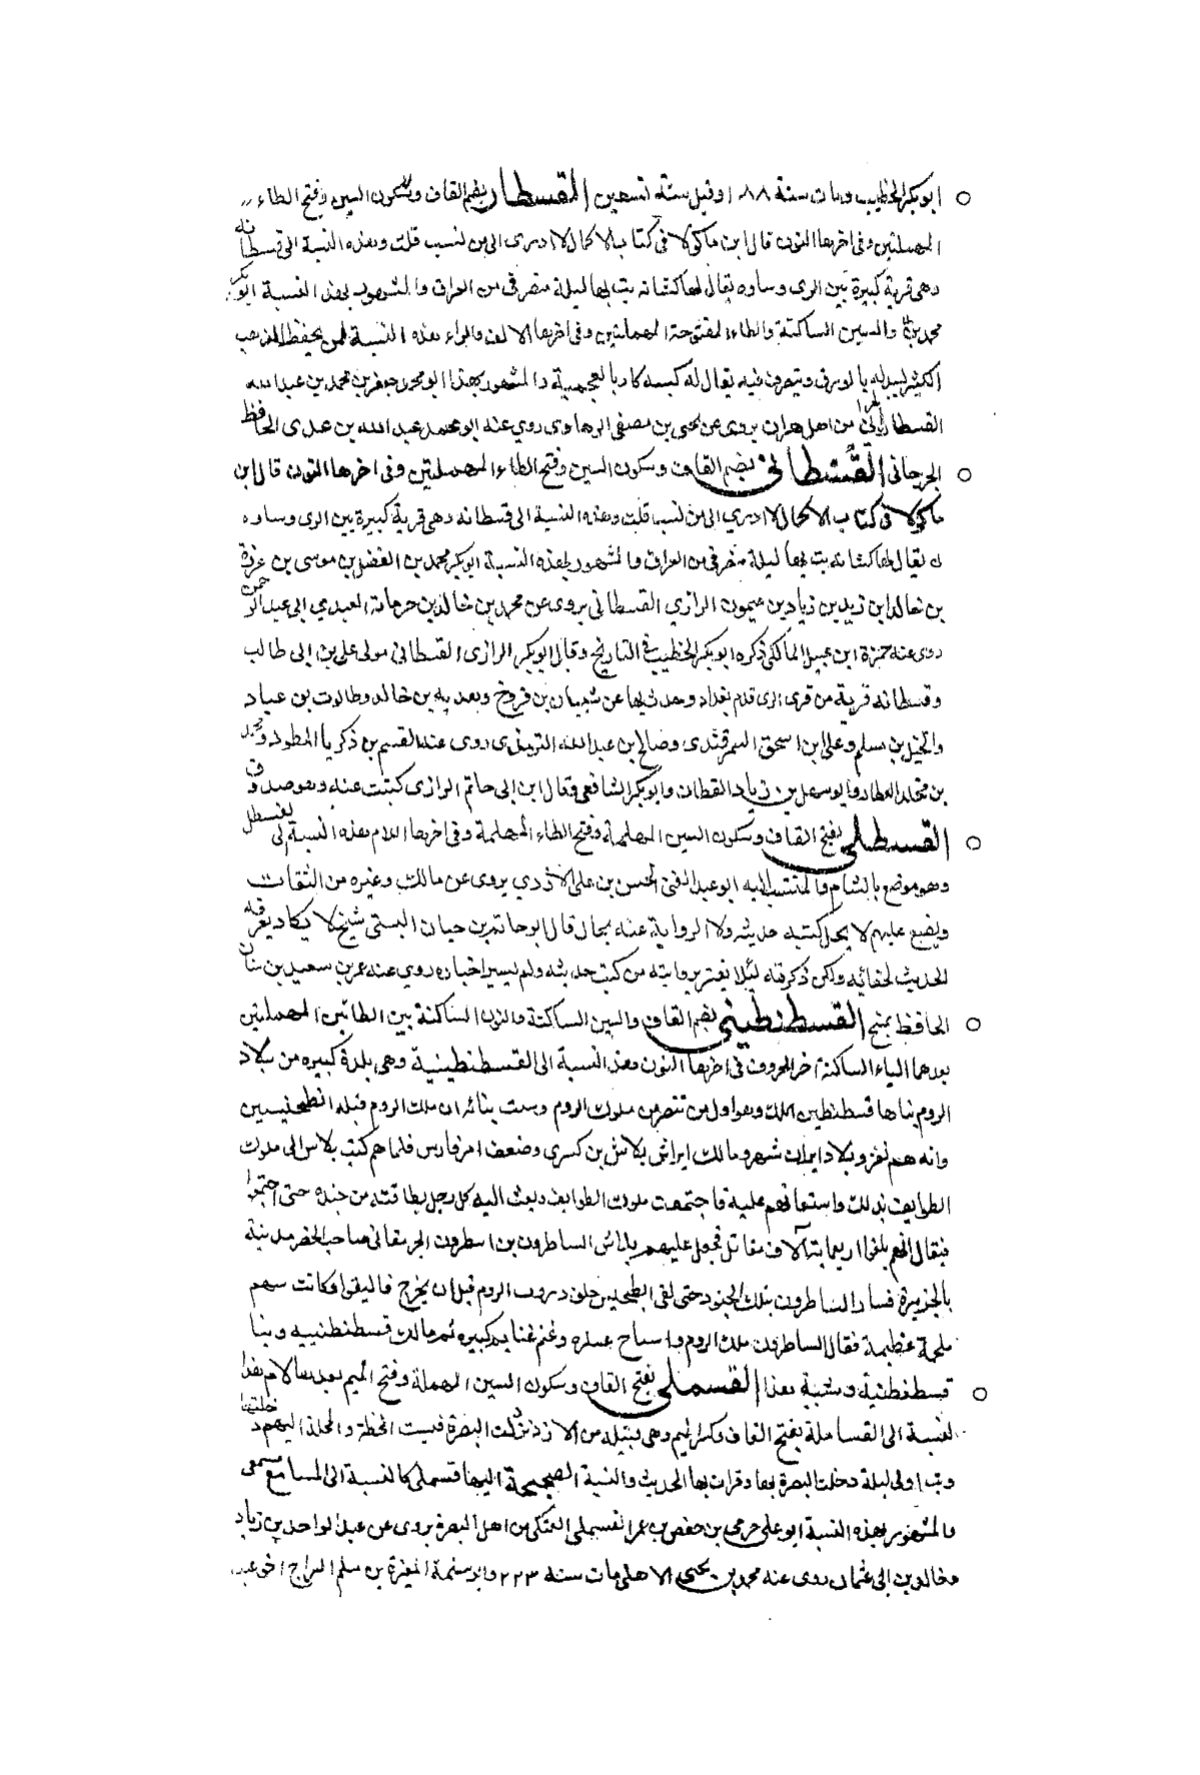 ابوبكر الخطيب ومات سنة ١٨٨ او قبل سنة تسعين القسطار بضم القاف وسكون السين وفتح الطاء
المهملتين وفى اخرها النون قال ابن ماكولا فى كتاب الاكمال لا ادرى الى من نسب قلت وهذه النسبة الى قسطانه
وهى قرية كبيرة بين الرى وساوه يقال لها كشتانه بت بها ليلة منصرفى من العراق والمشهور بهذه النسبة ابوبكر
محمد بن والسين الساكنة والطاء المفتوحة المهملتين وفى اخرها الالف والراء هذه النسبة لمن يحفظ الذهب
الكثير ويتصرف فيه يقال له كيسه كار بالعجمية والمشهور بهذا ابو محمد جعفر بن محمد بن عبد الله
القسطار من اهل حران يروى عن يحيى بن مصفى الرهاوى روى عنه ابو محمد عبد الله بن عدى الحافظ
الجرجانى القسطانى بضم القاف وسكون السين وفتح الطاء المهملتين وفى اخرها النون قال ابن
ماكولا فى كتاب الاكمال لا ادرى الى من نسب قلت وهذه النسبة الى قسطانه وهى قرية كبيرة بين الرى وساوه
يقال لها كشتانه بت بها ليلة منصرفى من العراق والمشهور بهذه النسبة ابوبكر محمد بن الفضل بن موسى بن عزرة
بن خالد ابن زيد بن زياد بن ميمون الرازى القسطانى يروى عن محمد بن خالد بن حرملة العبدي ابى عبد الرحمن
روى عنه حمزة ابن عبيد المالكى ذكره ابوبكر الخطيب فى التاريخ وقال ابوبكر الرازى القسطانى مولى على بن ابى طالب
وقسطانه قرية من قرى الرى قدم بغداد وحدث بها عن شيبان بن فروخ وهدبه بن خالد وطالوت بن عباد
والخليل بن سلم وعلى ابن اسحق السمرقندى وصالح بن عبد الله الترمذى روى عنه القسم بن زكريا المطرز ومحمد
بن مخلد العطار وابو سهل بن زياد القطان وابوبكر الشافعى وقال ابن ابى حاتم الرازى كتبت عنه وهو صدوق
القسطلى بفتح القاف وسكون السين المهملة وفتح الطاء المهملة وفى اخرها اللام هذه النسبة الى قسطل
وهو موضع بالشام والمنتسب اليه ابو عبد الغنى الحسن بن على الازدي يروى عن مالك وغيره من الثقات
ويضع عليهم لا يحل كتبة حديثه ولا الرواية عنه بحال قال ابو حاتم بن حبان البستى شيخ لا يكاد يعرفه
الحديث لخفائه ولكن ذكرته لئلا يغتر بروايته من كتب حديثه ولم يسبر اخباره روى عنه عمر بن سعيد بن سنان
الحافظ بمنبج القسطنطينى بضم القاف والسين الساكنة والنون الساكنة بين الطائين المهملتين
بعدهما الياء الساكنة اخر الحروف فى اخرها النون وهذه النسبة الى القسطنطينية وهى بلدة كبيرة من بلاد
الروم بناها قسطنطين الملك وهو اول من تنصر من ملوك الروم وسبب بنائه ان ملك الروم قبله
وانه هم بغزو بلاد ايران شهر ومالك ايرانى بلاش بن كسرى وضعف امر فارس فلما هم كتب بلاس الى ملوك
الطوايف بذلك واستعانهم عليه فاجتمعت ملوك الطوايف وبعث اليه كل رجل بطاقته من جنده حتى اجتمعوا
فيقال انهم بلغوا اربعمايه آلاف مقاتل فجعل عليهم بلاش الساطرون بن اسطرون الجرمقانى صاحب الحضر مدينة
بالجزيرة فسار الساطرون بتلك الجنود حتى لقى خلف دروب الروم قبل ان يخرج فالتقوا فكانت بينهم
ملحمة عظيمة فقال الساطرون ملك الروم واستباح عسكره وغنم غنايم كبيره ثم مالك قسطنطنييه وبنا
قسطنطنية وسميت بهذا القسملى بفتح القاف وسكون السين المهملة وفتح الميم بعدها لام هذا
النسبة الى القساملة بفتح القاف وكسر الميم وهى قبيله من الازد نزلت البصرة فنسبت الخطة والمحلة اليهم دخلتها
وبت اولى ليلة دخلت البصرة بها وقرات بها الحديث والنسبة الصحيحة اليها قسملى كالنسبة الى المسامع مسمعى
والمشهور بهذه النسبة ابو على حرمى بن حفص بن عمر القسملى العتكى من اهل البصرة يروى عن عبد الواحد بن زياد
وخالد بن ابى عثمان روى عنه محمد بن يحيى الاهلى مات سنه ٢٢٣ وابو سلمة المغيرة بن مسلم السراج اخو عبد